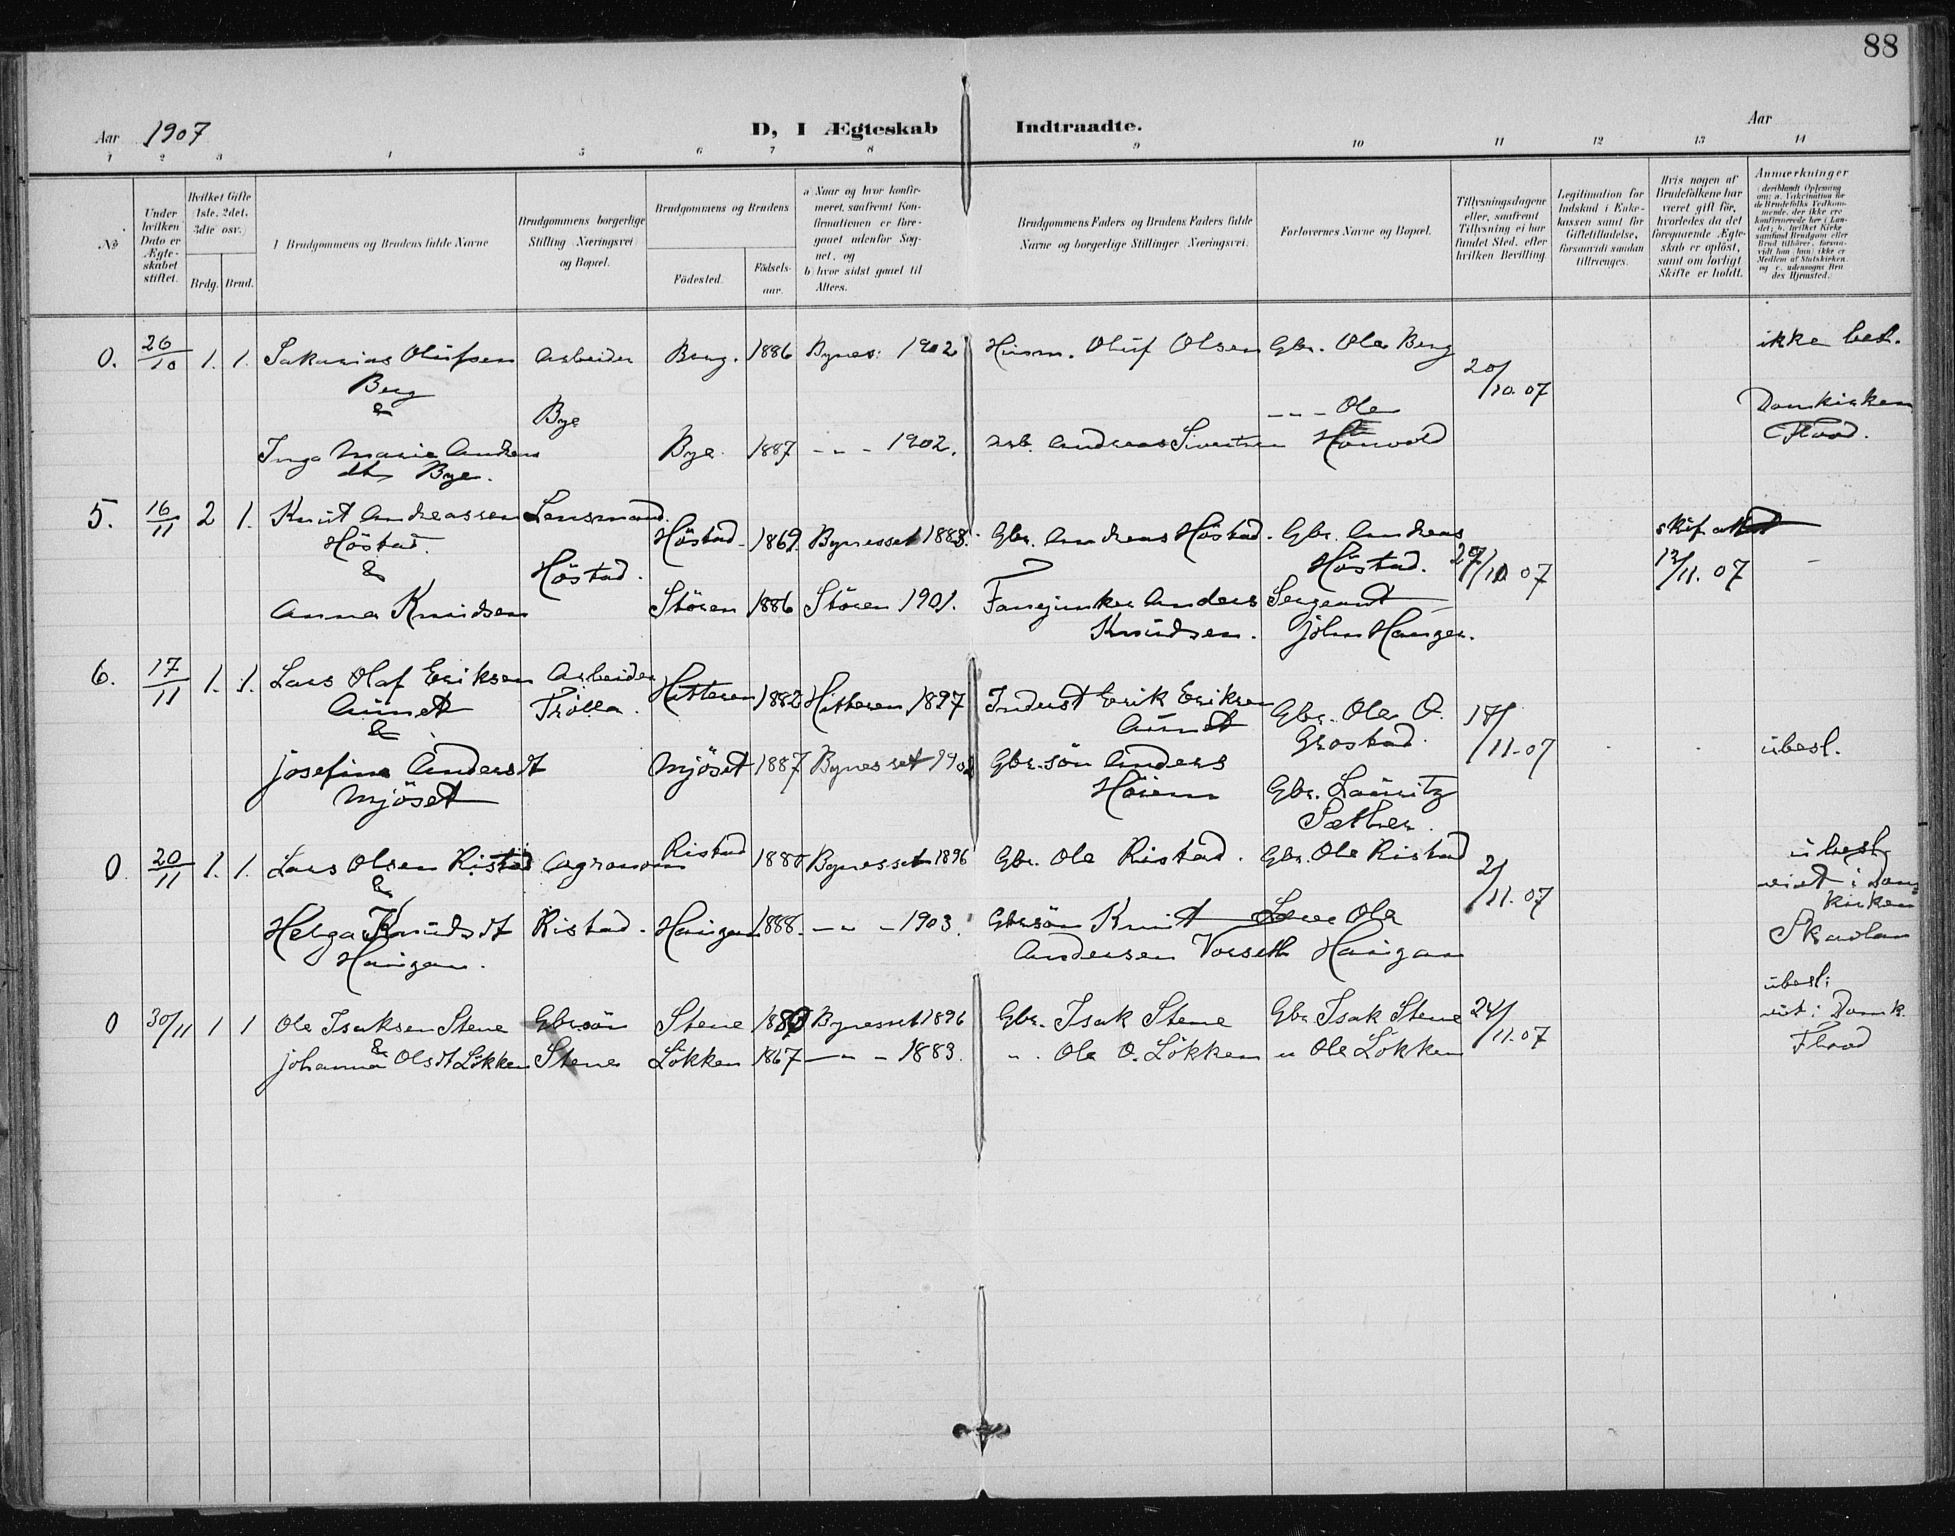 88
Aar 1907
D, I Ægteskab Indtraadte.
Aar
1 2 3 4 5 6 7 8 9 10 11 12 13 14
No
Under hvilken Dato er Ægteskabet stiftet.
Hvilket Gifte 1ste, 2det, 3die osv.
Brdg. Brud.
Brudgommens og Brudens fulde Navne
Brudgommens borgerlige Stilling (Næringsvei) og Bopæl.
Brudgommens og Brudens
Födested.
Födselsaar.
a) Naar og hvor konfirmeret, saafremt Konfirmationen er foregaaet udenfor Sognet, og
b) hvor sidst gaaet til Alters.
Brudgommens Faders og Brudens Faders fulde Navne og borgerlige Stillinger (Næringsvei).
Forlovernes Navne og Bopæl.
Tillysningsdagene eller, saafremt Tillysning ei har fundet Sted, efter hvilken Bevilling.
Legitimation for Indskud i Enkekassen samt for Giftetilladelse, forsaavidt saadan tiltrænges.
Hvis nogen af Brudefolkene har været gift før, hvorledes da det foregaaende Ægteskab er oplöst, samt om lovligt Skifte er holdt.
Anmærkninger
0. 26/10 1. 1. Sakarias Olufsen Arbeider Berg. 1886 Bynes: 1902 Husm. Oluf Olsen Gbr. Ole Berg 20/10.07 ikke besl.
Berg
&
Bye
- - - Ole
Domkirken
Inga Marie Andreas Bye 1887 - " - 1902. Arb. Andreas Sivertsen Flood.
dtr Bye.
5. 16/11 2 1. Knut Andreassen Lensmand. Höstad. 1869. Bynesset 1883. Gbr. Andreas Höstad. Gbr. Andreas
Höstad. Höstad. Höstad. /10 07 12/11. 07
&
Anna Knudsen Stören 1886 Stören 1901. Fanejunker Anders Sergeant
Knudsen. John Haugen.
6. 17/11 1. 1. Lars Olaf Eriksen Arbeider Hitteren 1882 Hitteren 1897 Indust Erik Eriksen Gbr. Ole O. 17/11-07
Aunet Trolla. Aunet Grostad.
&
Josefine Andersdt Mjöset 1887 Bynesset Gbr.sön Anders ubesl.
Mjöset Gbr. Lauritz
Sæther.
0 20/11 1. 1. Lars Olsen Ristad Agronom Ristad Bynesset 1896 Gbr. Ole Ristad. Gbr. Ole Ristad /11.07 ubesl.
&
viet i Dom
kirken
Helga Knudsdt Ristad. Haugan 1888. - " - 1903. Gbrsön Knut Ole Skadan
Haugan. Andersen Vorseth Haugan
0 30/11 1 1 Ole Isaksen Stene Gbrsön Stene Bynesset 1896 Gbr. Isak Stene Gbr Isak Stene 24/11.07 ubesl:
&
viet i Domk.
Johanna Olsdt Lökken Stene Lökken 1867 - " - 1883. " Ole O. Lökken " Ole Lökken Flood